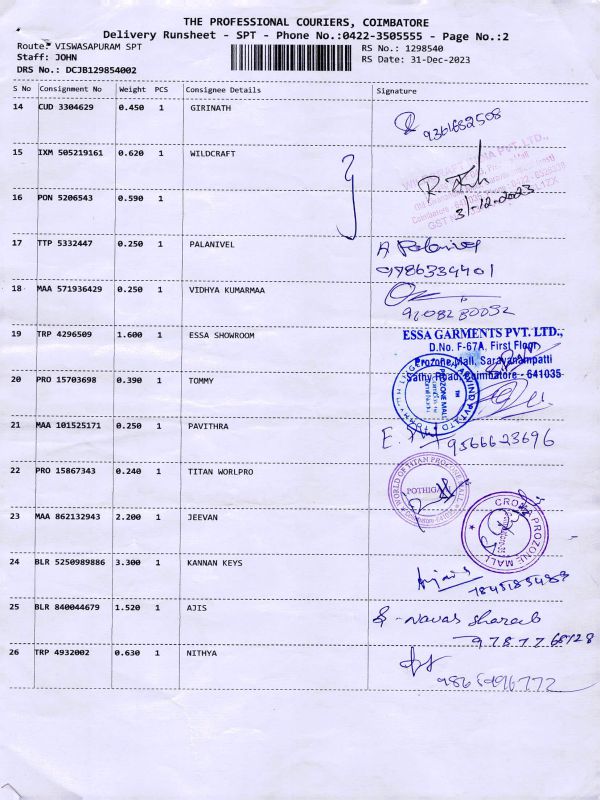 THE PROFESSIONAL COURIERS, COIMBATORE
Delivery Runsheet - SPT - Phone No.:0422-3505555 - Page No.:2
Route: VISWASAPURAM SPT
Staff: JOHN
DRS No.: DCJB129854002
RS No.: 1298540
RS Date: 31-Dec-2023
S No Consignment No Weight PCS Consignee Details Signature
14 CUD 3304629 0.450 1 GIRINATH
9361682508
15 IXM 505219161 0.620 1 WILDCRAFT
31-12-2023
16 PON 5206543 0.590 1
17 TTP 5332447 0.250 1 PALANIVEL
A Palanivel
9786334401
18 MAA 571936429 0.250 1 VIDHYA KUMARMAA
9208280052
19 TRP 4296509 1.600 1 ESSA SHOWROOM
ESSA GARMENTS PVT. LTD.,
D.No. F-67A, First Floor
Prozone Mall, Saravanampatti
Sathy Road, Coimbatore - 641035
20 PRO 15703698 0.390 1 TOMMY
PROZONE MALL
21 MAA 101525171 0.250 1 PAVITHRA
9566623696
22 PRO 15867343 0.240 1 TITAN WORLPRO
WORLD OF TITAN PROZONE MALL
POTHIGAI
23 MAA 862132943 2.200 1 JEEVAN
PROZONE MALL
24 BLR 5250989886 3.300 1 KANNAN KEYS
25 BLR 840044679 1.520 1 AJIS
26 TRP 4932002 0.630 1 NITHYA